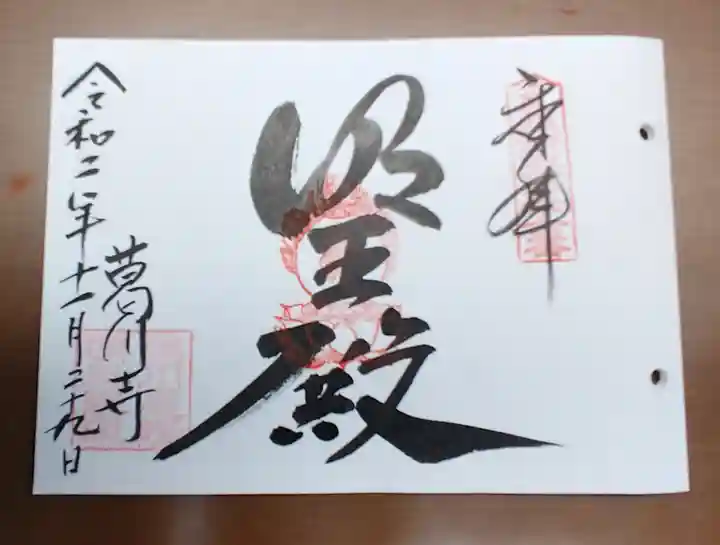 奉拝
明王殿
葛川寺
令和二年十一月二十九日